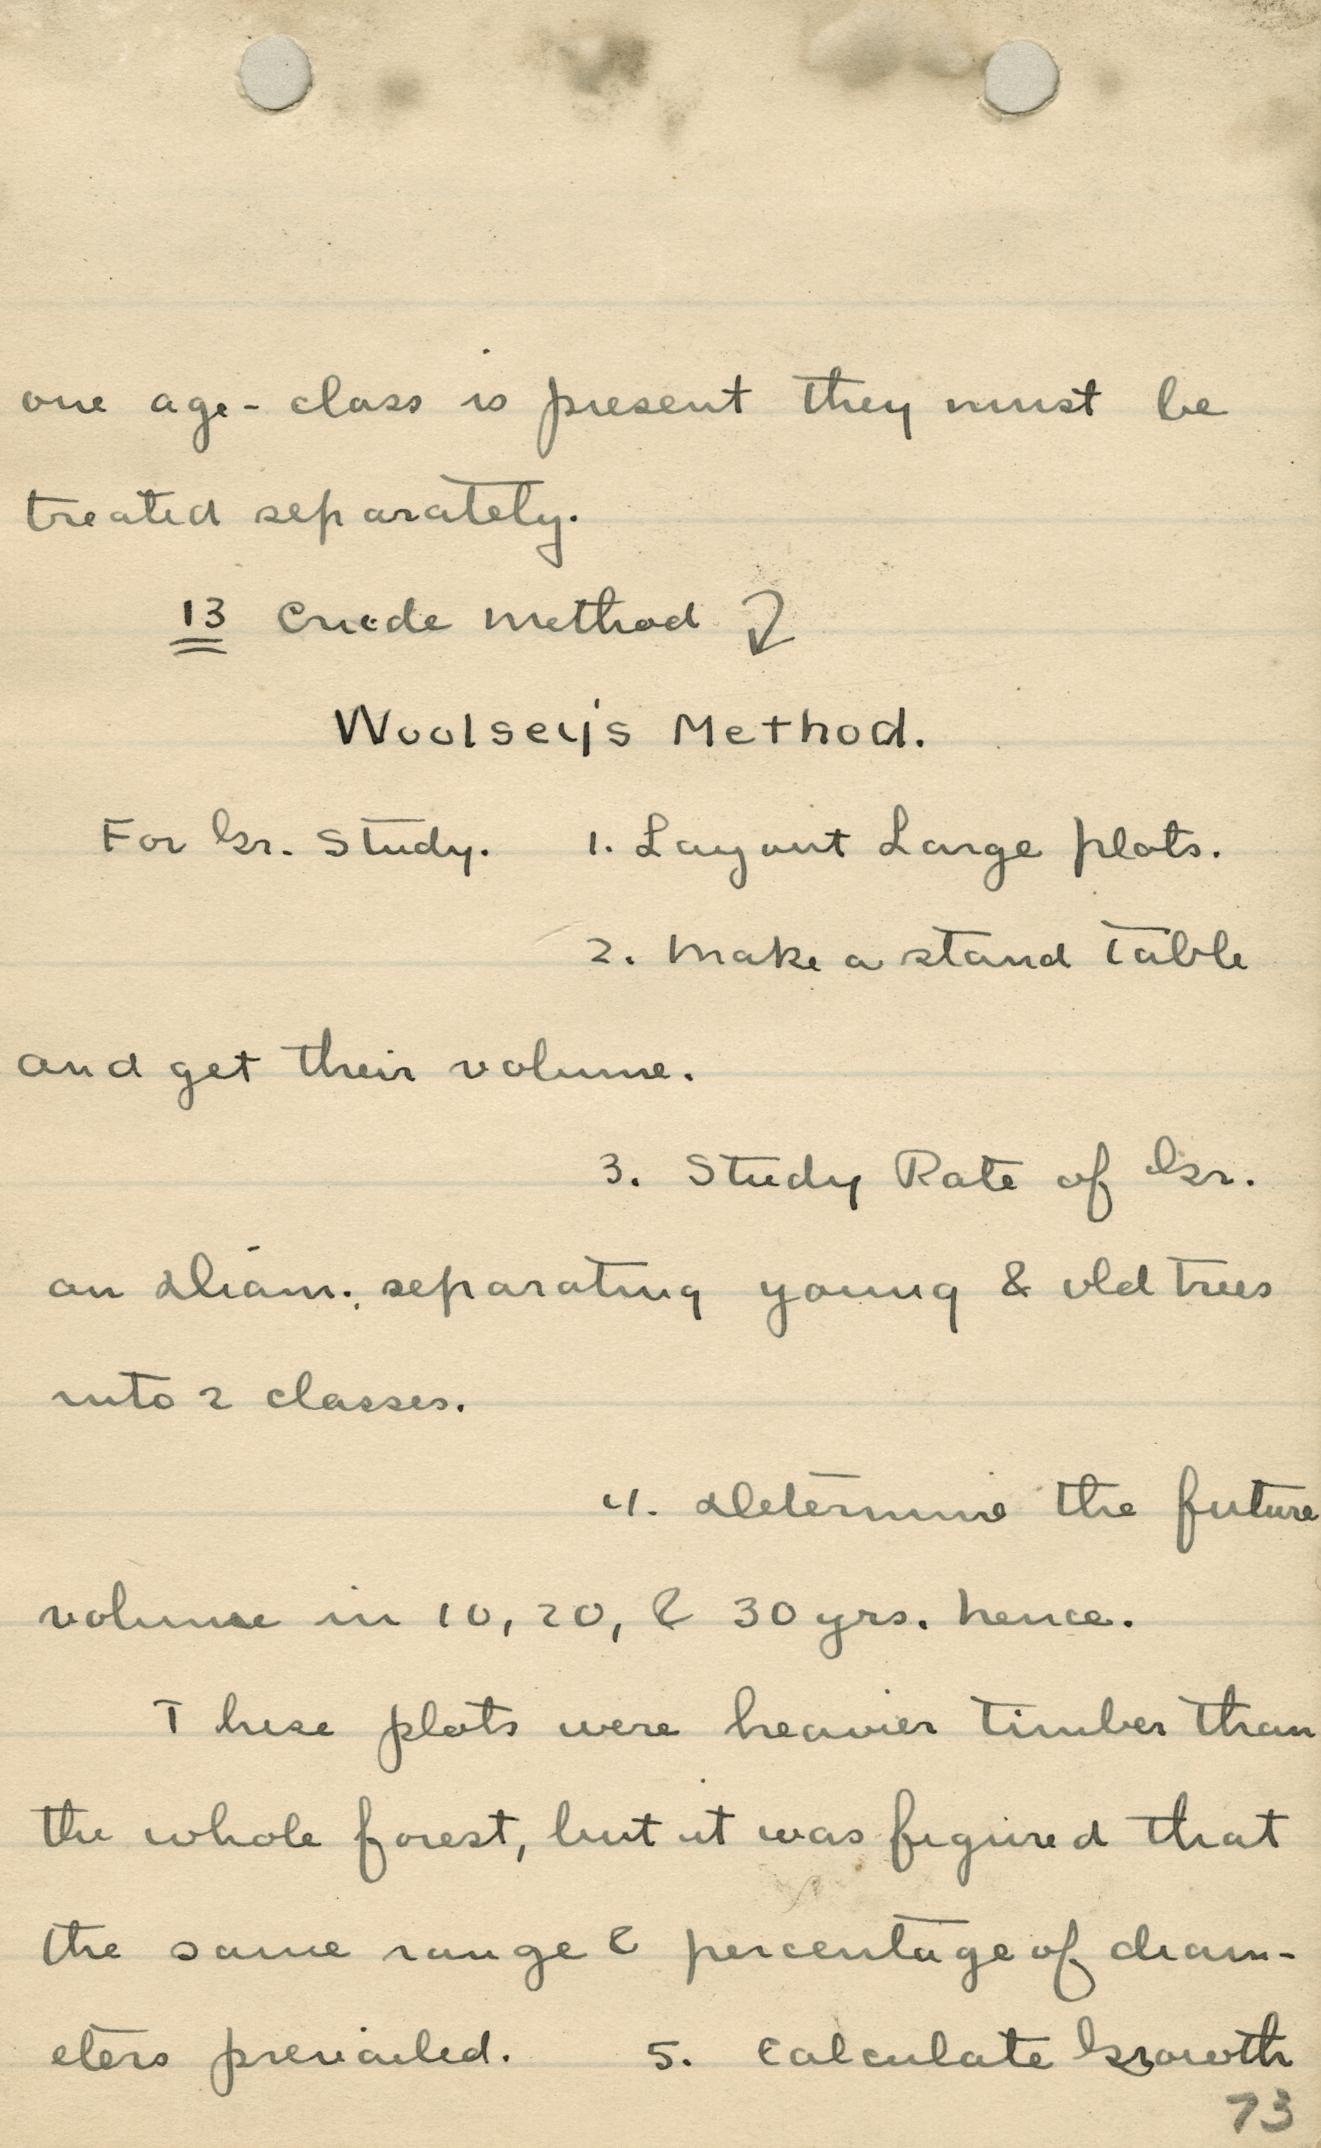 one age-class is present they must be
treated separately.
13 Crude method
Woolsey's Method.
For Gr. Study. 1. Lay out Large plots.
2. Make a stand table
and get their volume.
3. Study Rate of Gr.
on Diam.; separating young & old trees
into 2 classes.
4. Determine the future
volume in 10, 20, & 30 yrs. hence.
These plots were heavier timber than
the whole forest, but it was figured that
the same range & percentage of diam-
eters prevailed. 5. Calculate Growth
73